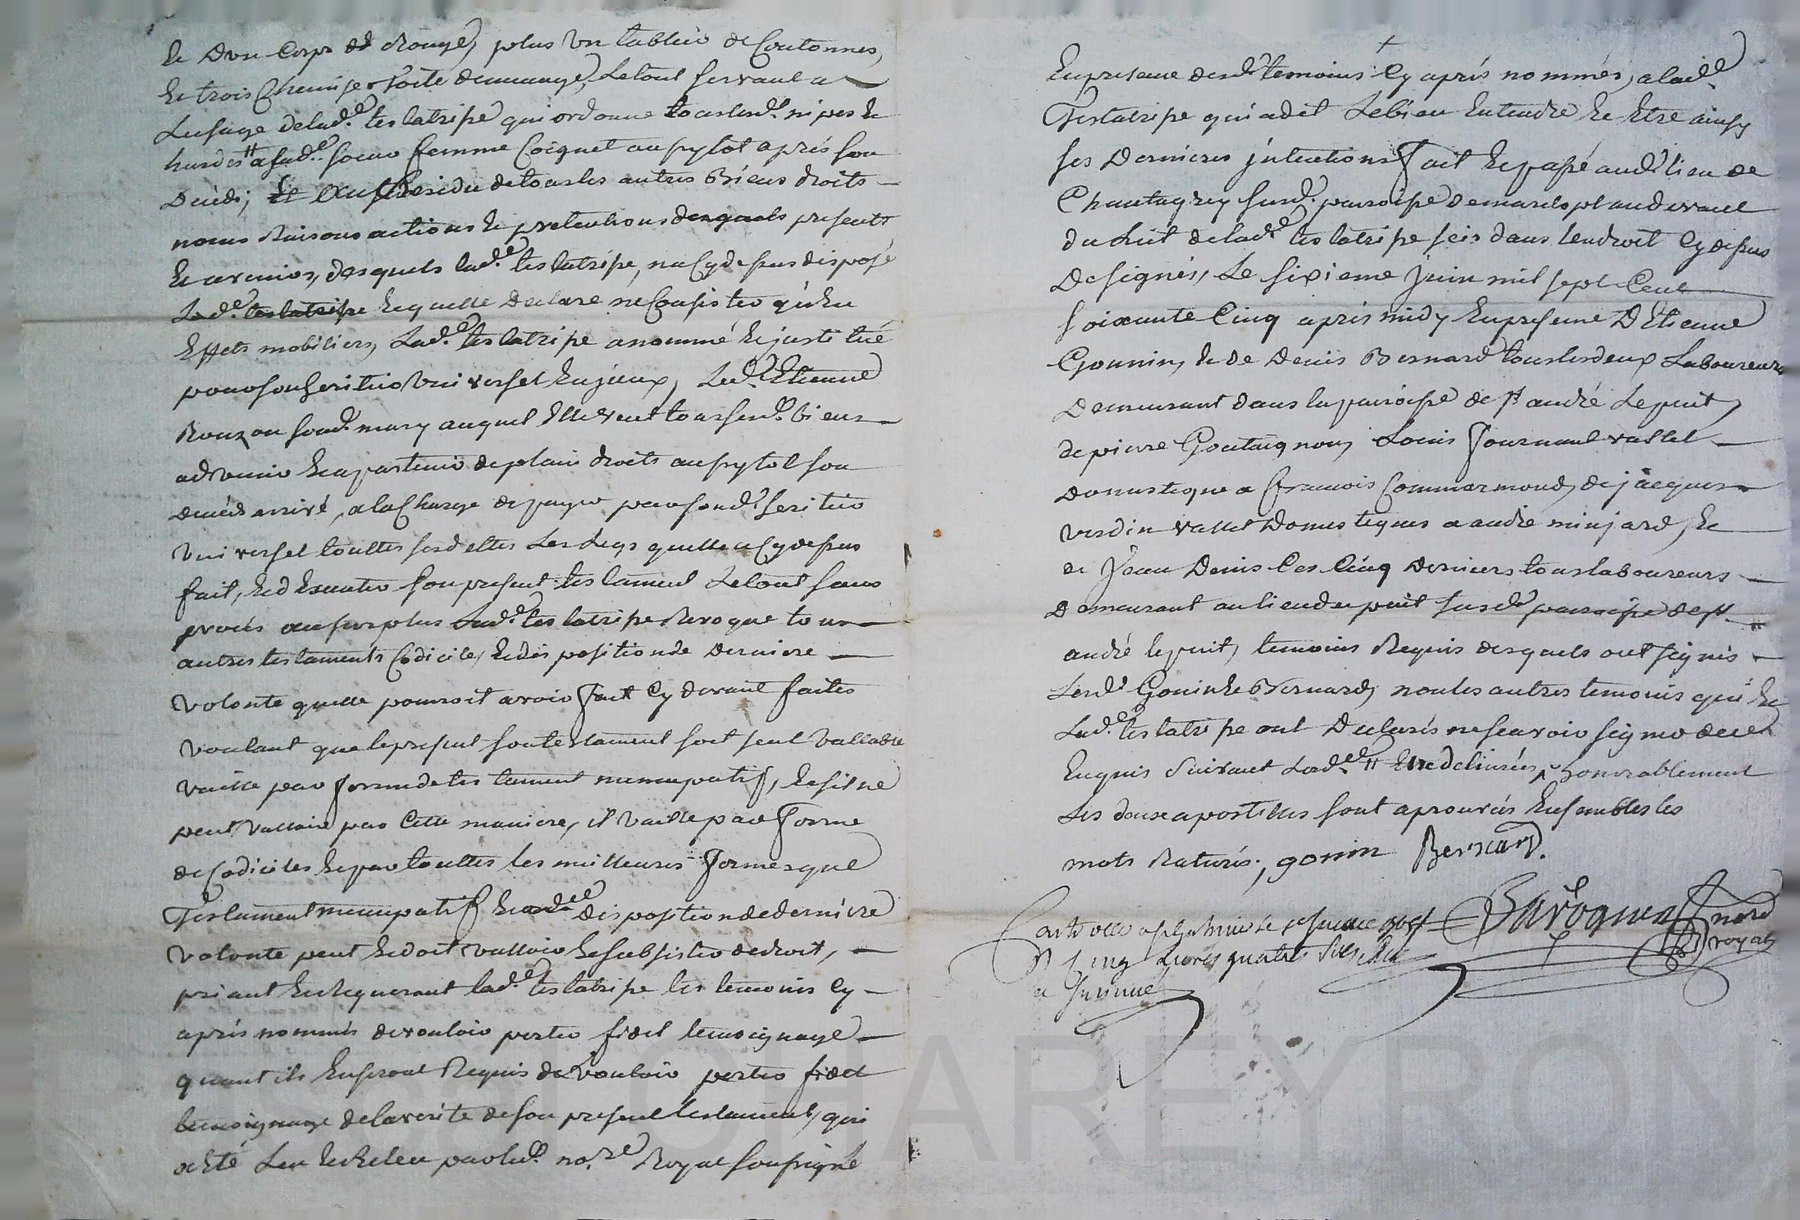 et d'un corps de Rouge, plus un tablié de Coutonnes,
et trois Chemises toile de menage, le tout servant a
lusage delad.e testatrisse qui ordonne tous lesd.s nipes et
hardes a sad.e soeur femme Coignet aussytôt après son
Decés; Et du Residu de tous les autres Biens droits
noms Raisons actions et pretentions presents
et avenirs, desquels lad.e testatrisse, na Cy dessus disposé
Lad.e testatrisse laquelle Declare ne Consister qu'en
Effets mobiliers, Lad.e testatrisse a nommé et justitué
pour son heritier universel led.t Etienne
Rouzon sond.t mary auquel Elle veut tous sesd.ts biens
advenir et apartenir de plain droits aussytot son
decéds arrivé, a la Charge de payer par sond.t heritier
universel touttes ses dettes Les Legs quelle a Cy dessus
fait, et d'Executer son present testament Le tout sans
procés au surplus Lad.e testatrisse Revoque tous
autres testaments Codiciles, et dispositions de Derniere
volonté quelle pourroit avoir fait Cy devant faites
voulant que le present son testament soit seul vallable
vaille par forme de testament nuncupatif, et s'il ne
peut valloir par Cette maniere, il vaille par forme
de Codiciles et par touttes les meilleures formes que
Testament nuncupatif et disposition de derniere
volonté peut et doit valloir et subsister de droit,
priant et Requerant lad.e testatrisse les temoins Cy
après nommés de vouloir porter fidel temoignage
quant ils En seront Requis de vouloir porter fidel
temoignage de la verité de son present testament, qui
a Eté Leu et Releu par led.t no.re Royal soussigné
En presence desd.ts temoins Cy après nommés, a lad.e
Testatrisse qui a dit Le bien Entendre et Etre ainsy
ses Dernieres jntentions fait et passé aud.t lieu de
Chantagrey susd.e paroisse de marcloptaudevant
du Lit de lad.e testatrisse seis dans lendroit Cy dessus
Designés, Le sixieme juin mil sept Cent
soixante Cinq après midy En presence D'Etienne
Gounin, et de Denis Bernard tous les deux Laboureurs
Demeurant dans la paroisse de S.t andré Le puit,
de pierre Goutaignon, Louis fournant vallet
domestique a francois Commarmond, de jacques
verdin vallet Domestique a andré minjard, et
de jean Denis Ces Cinq Derniers tous laboureurs
Demeurant au lieu du puit susd.e paroisse de S.t
andré le puit, temoins Requis desquels ont signés
Lesd.s Gonin et Bernard, non les autres temoins qui Et
Lad.e testatrisse ont Declarés ne scavoir signer de ce
Enquis suivant honorablement
Les deux apostilles sont aprouvées Ensembles les
mots Raturés; gonin Bernard.
no.re
royal
Controllé
R.s Cinq Livres quatres sols